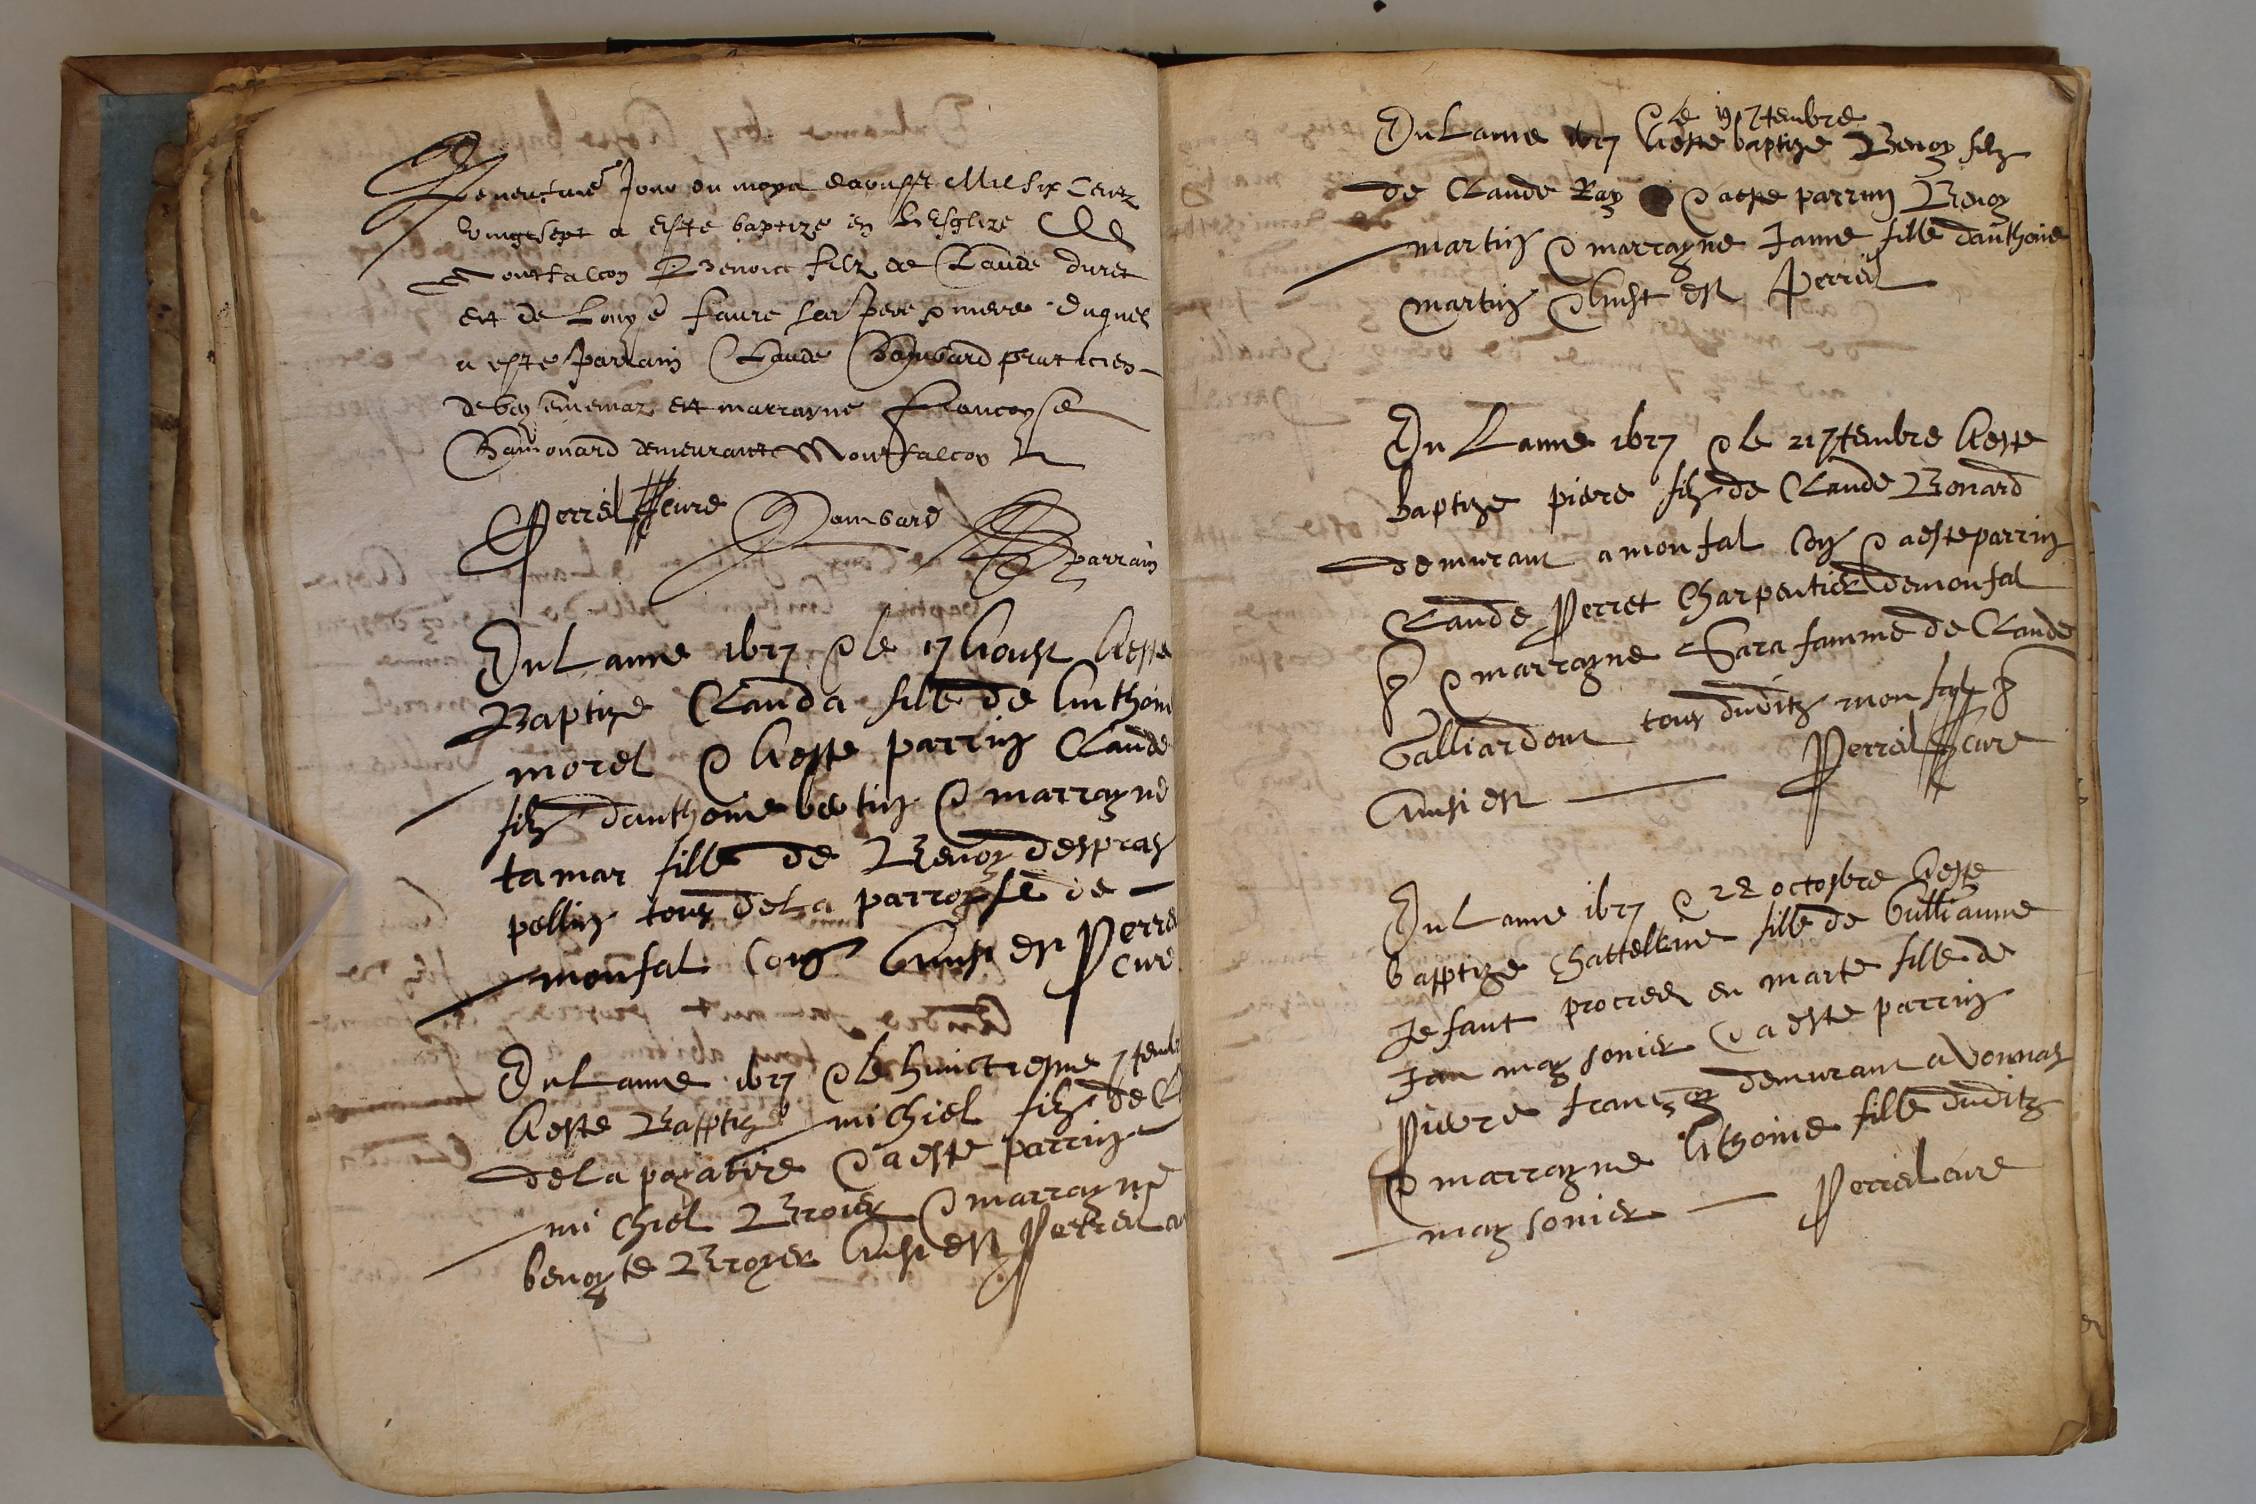 Le neufme Jour du moys daoust Mil six Centz
vingt sept a este baptize en Lesglize de
Montfalcon Benoict filz de Claude duret
ett de Louyse faure ses pere & mere duquel
a este parrain Claude Bambard praticien
de ett marrayne Francoyse
demeurante Montfalcon
Perrel cure Bambard parrain
Du Lanne 1627 & le 17 Aoust A este
Baptize Clauda fille de Anthoine
morel & A este parrin Claude
filz danthoine bertin & marrayne
tamar fille de Benoy despras
pellin tous de La parroysse de
monfal Con Ainsi est Perrel
cure
Du Lanne 1627 & le huictiesme 7tembre
A este Baptize michiel filz de
de La poyatire & a este parrin
michiel Broier & marrayne
benoyte Broyer Ainsi est Perrel
& le 19 7tembre
Du Lanne 1627 A este baptize Benoy filz
de Claude Ray & a este parrin Benoy
martin & marrayne Janne fille danthoine
martin Ainsi est Perrel
Du Lanne 1627 & le 21 7tembre A este
baptize piere filz de Claude Bonard
demurant a monfal Con & a este parrin
Claude Perret Charpentier de monfal
Con & marrayne Sara famme de Claude
Galliardon tous duditz monfal Con
Ainsi est Perrel cure
Du Lanne 1627 & 22 octosbre A este
bapptize Chattelline fille de Gulliaume
Jefant procree en marte fille de
Jan maysonier & a este parrin
Piere françoy demurant a Vonnas
& marrayne Athoine fille duditz
maysonier Perrel cure